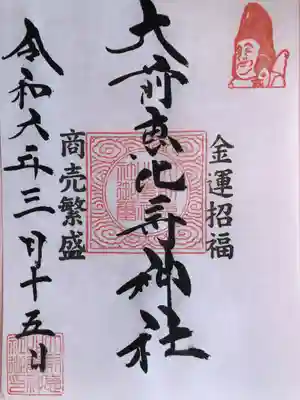 金運招福
大前恵比寿神社
商売繁盛
令和六年三月十五日